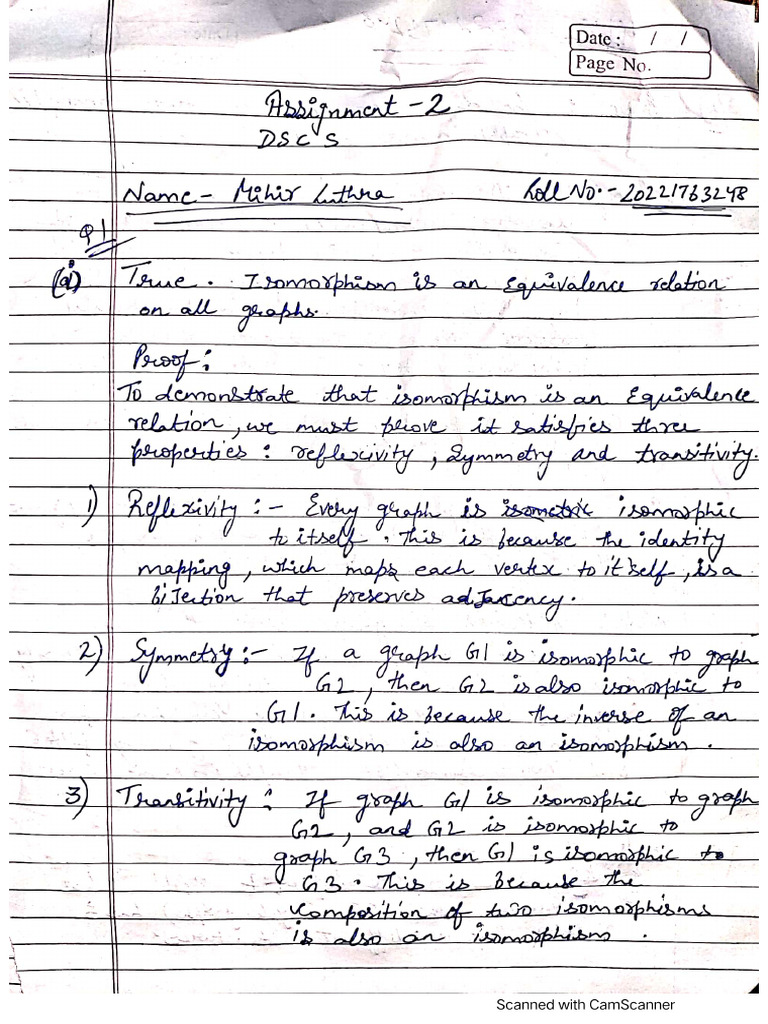 Date: / /
Page No.
Assignment - 2
DSCS
Name - Mihir Luthra Roll No. - 20221763248
Q1
(a) True. Isomorphism is an Equivalence relation
on all graphs.
Proof:
To demonstrate that isomorphism is an Equivalence
relation, we must prove it satisfies three
properties: reflexivity, Symmetry and transitivity.
1) Reflexivity :- Every graph is isometric isomorphic
to itself. This is because the identity
mapping, which maps each vertex to itself, is a
biJection that preserves adJacency.
2) Symmetry :- If a graph G1 is isomorphic to graph
G2, then G2 is also isomorphic to
G1. This is because the inverse of an
isomorphism is also an isomorphism.
3) Transitivity : If graph G1 is isomorphic to graph
G2, and G2 is isomorphic to
graph G3, then G1 is isomorphic to
G3. This is because the
composition of two isomorphisms
is also an isomorphism.
Scanned with CamScanner